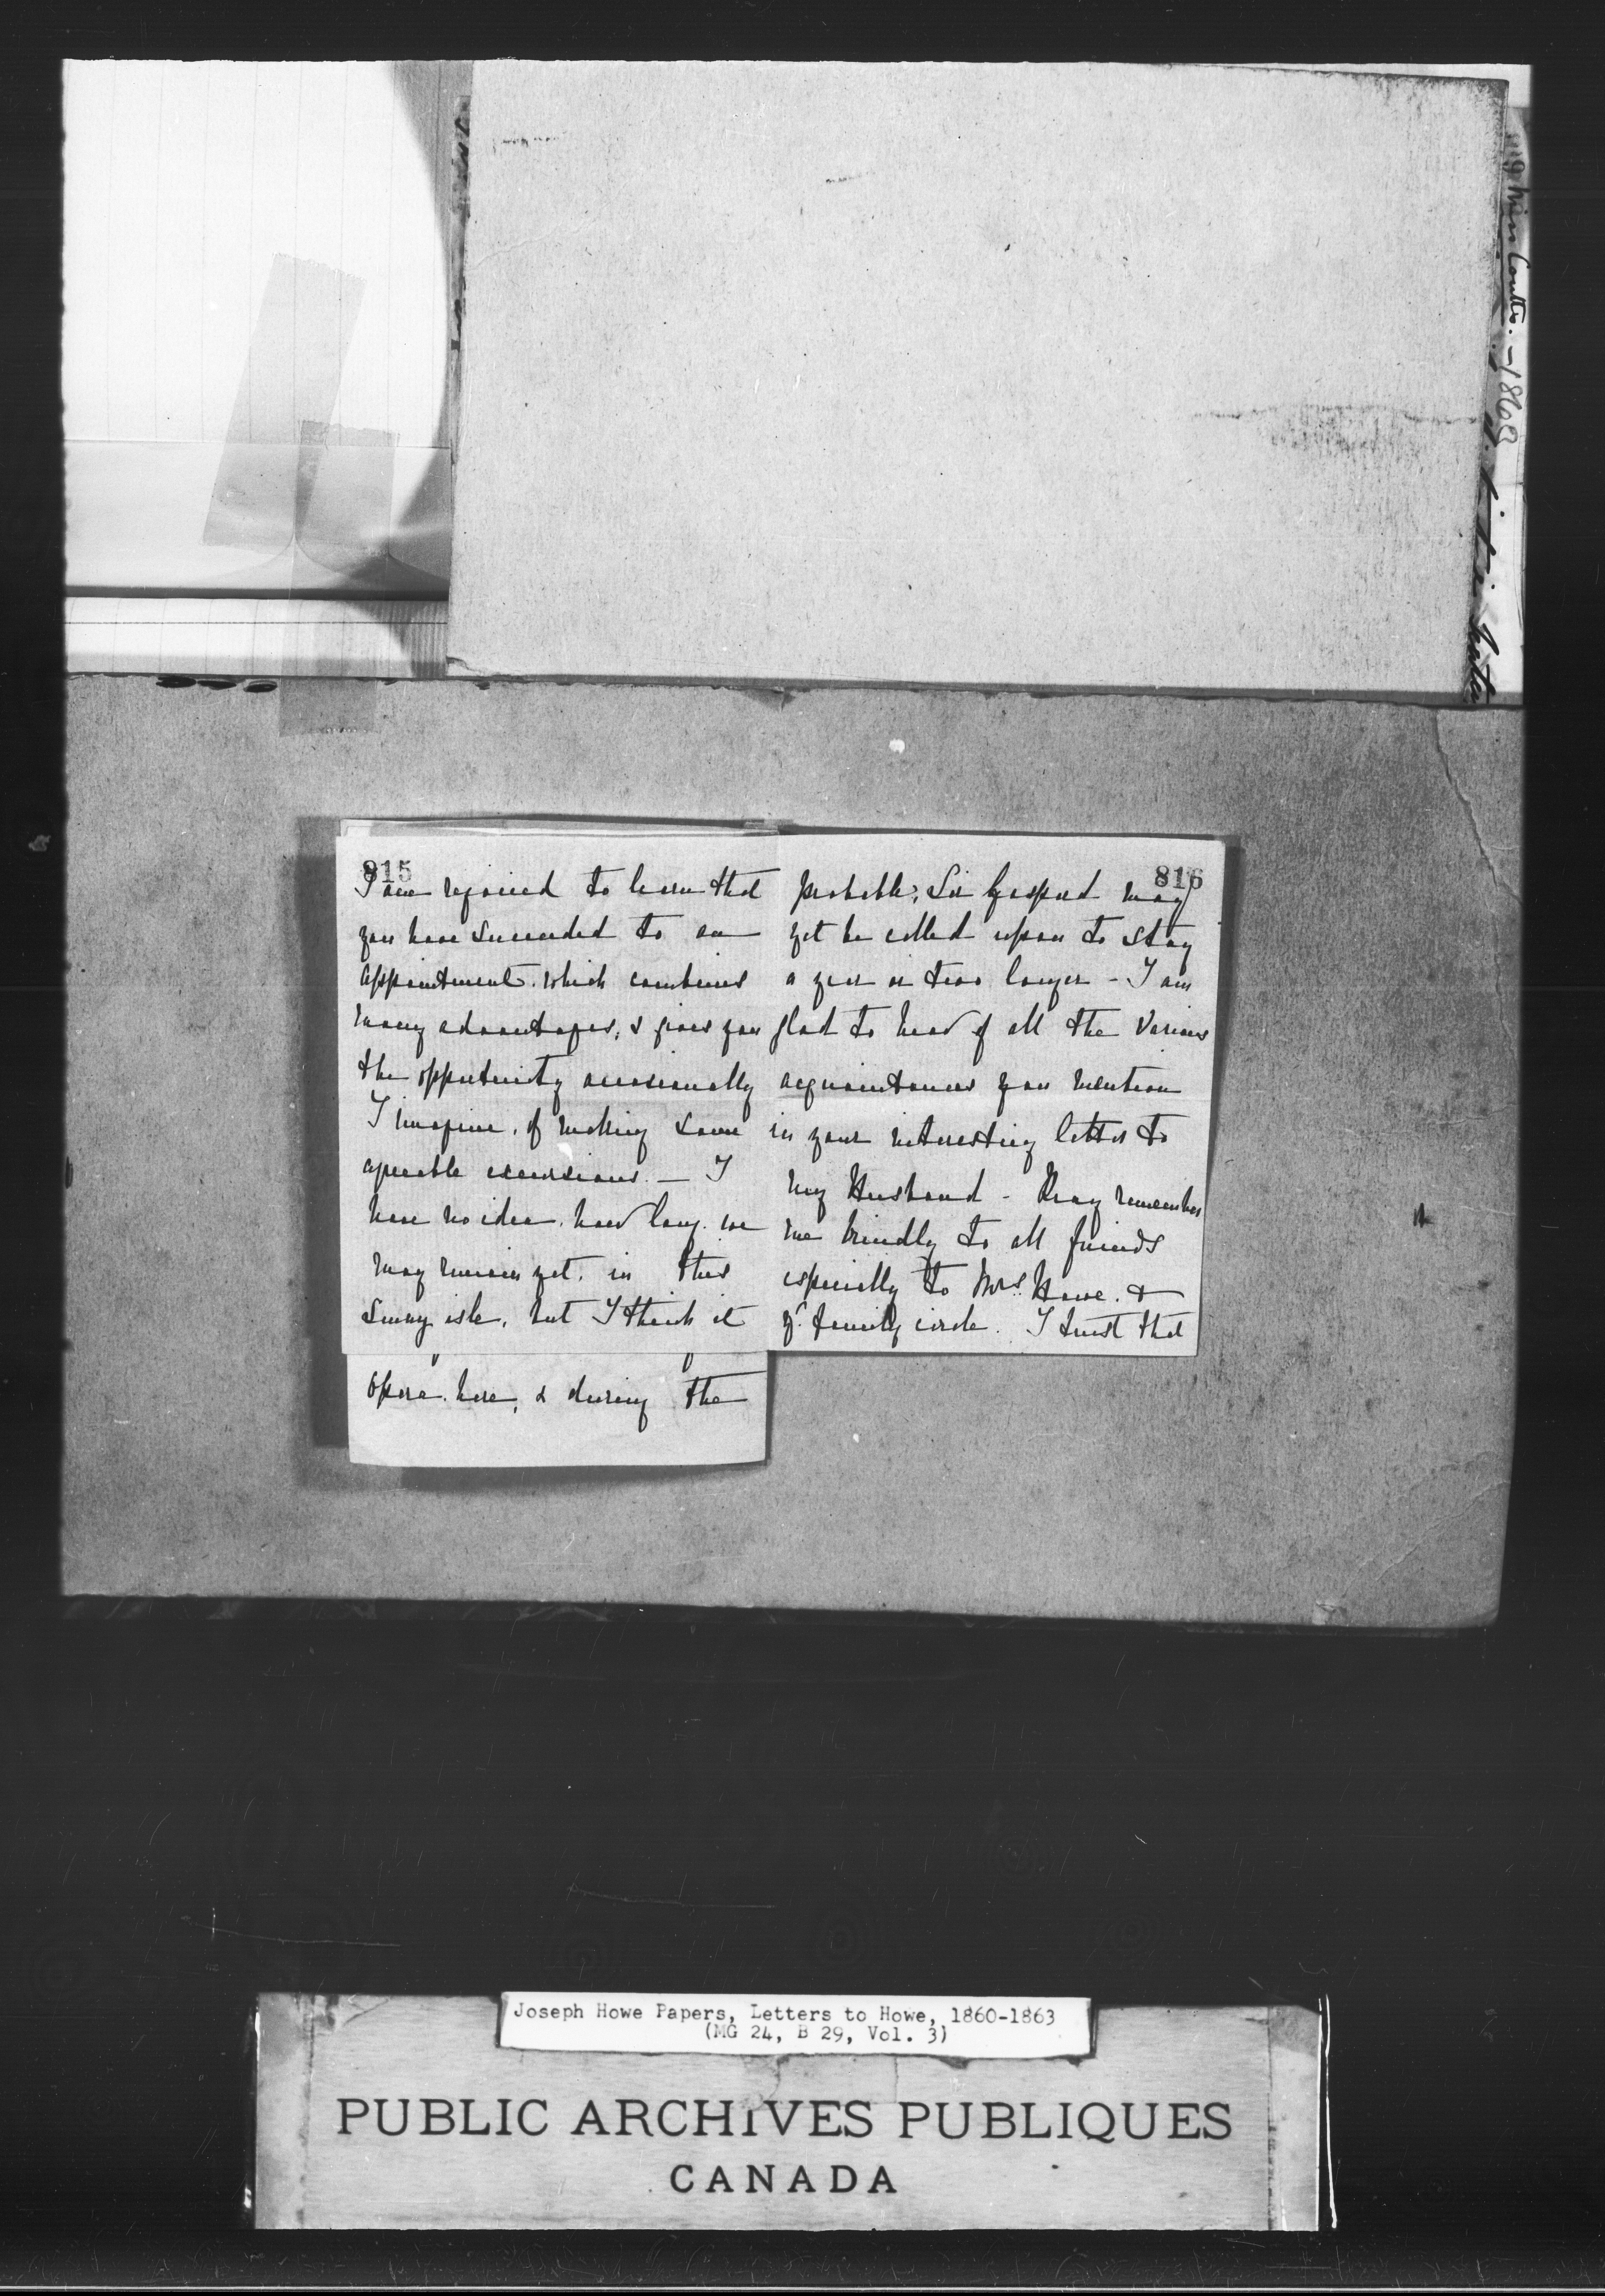 815
I am rejoiced to learn that
you have succeeded to an
appointment. which combines
many advantages, & gives you
the opportunity occasionally
I imagine, of making some
agreeable excursions. — I
have no idea. how long. we
may remain yet. in this
sunny isle, but I think it
opera. here, & during the
816
probable; Sir Gaspard may
yet be called upon to stay
a year or two longer - I am
glad to hear of all the various
acquaintances you mention
in your interesting letter to
my Husband - Pray remember
me kindly to all friends
especially to Mrs. Howe. &
yr. family circle. I trust that
Miss Coutts. - 1868
Joseph Howe Papers, Letters to Howe, 1860-1863
(MG 24, B 29, Vol. 3)
PUBLIC ARCHIVES PUBLIQUES
CANADA